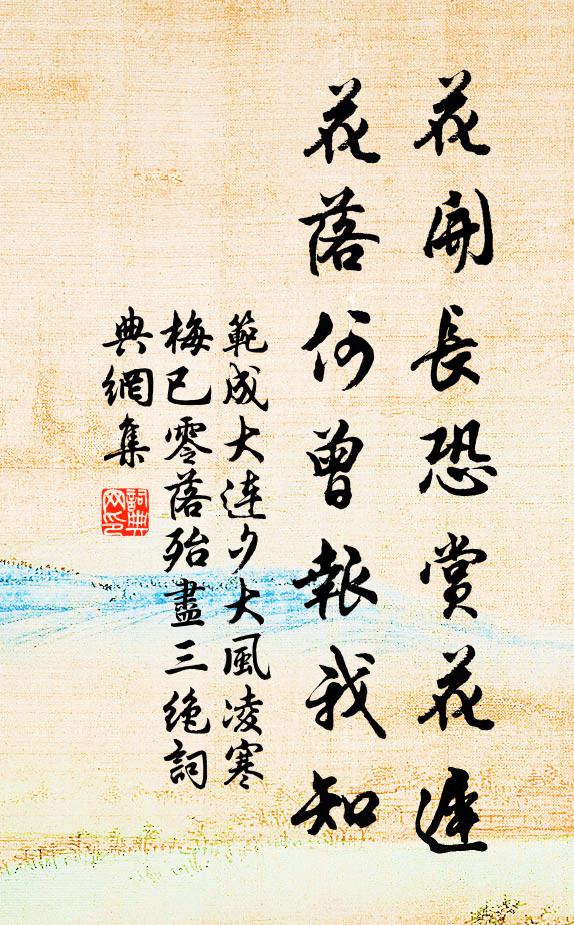 花開長恐賞花遲
花落何曾報我知
範成大連夕大風凌寒
梅已零落殆盡三絕詞
典網集
詞典網印